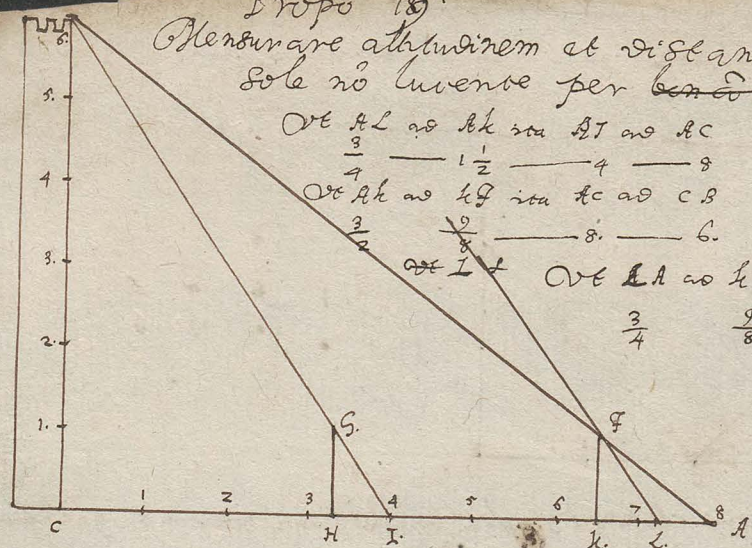 Propo 19
Mensurare altitudinem et distan
sole nō lucente per
Vt AL ad Ak ita AI ad AC
3/4 — 1 1/2 — 4 — 8
Vt Ak ad kF ita AC ad CB
3/2 9/8 — 8. — 6.
Vt I L
Vt LA ad k
3/4 9/8
6.
5.
4
3.
2.
1.
G.
F
1 2 3 4 5 6 7 8
C H I. k. L. A